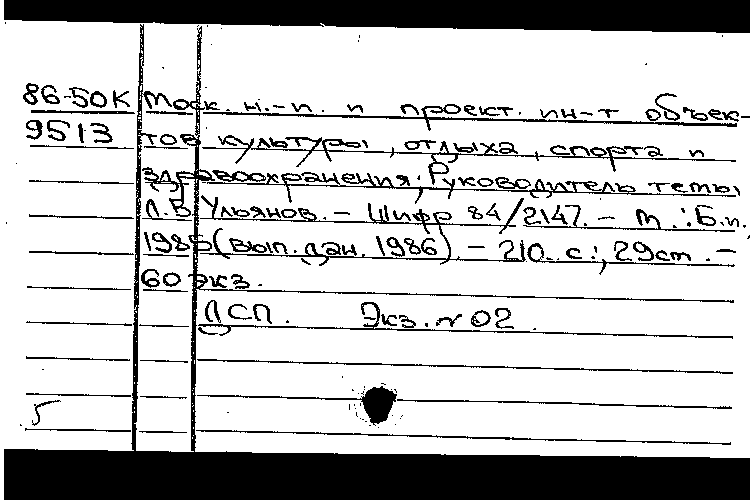 86-50К Моск. н.-и. и проект. ин-т объек-
9513 тов культуры, отдыха, спорта и
здравоохранения; Руководитель темы
Л.В. Ульянов. - Шифр 84/2147. - М.: Б.и.,
1985 (вып. дан. 1986). - 210 с.; 29см. -
60 экз.
ДСП. Экз. № 02.
5